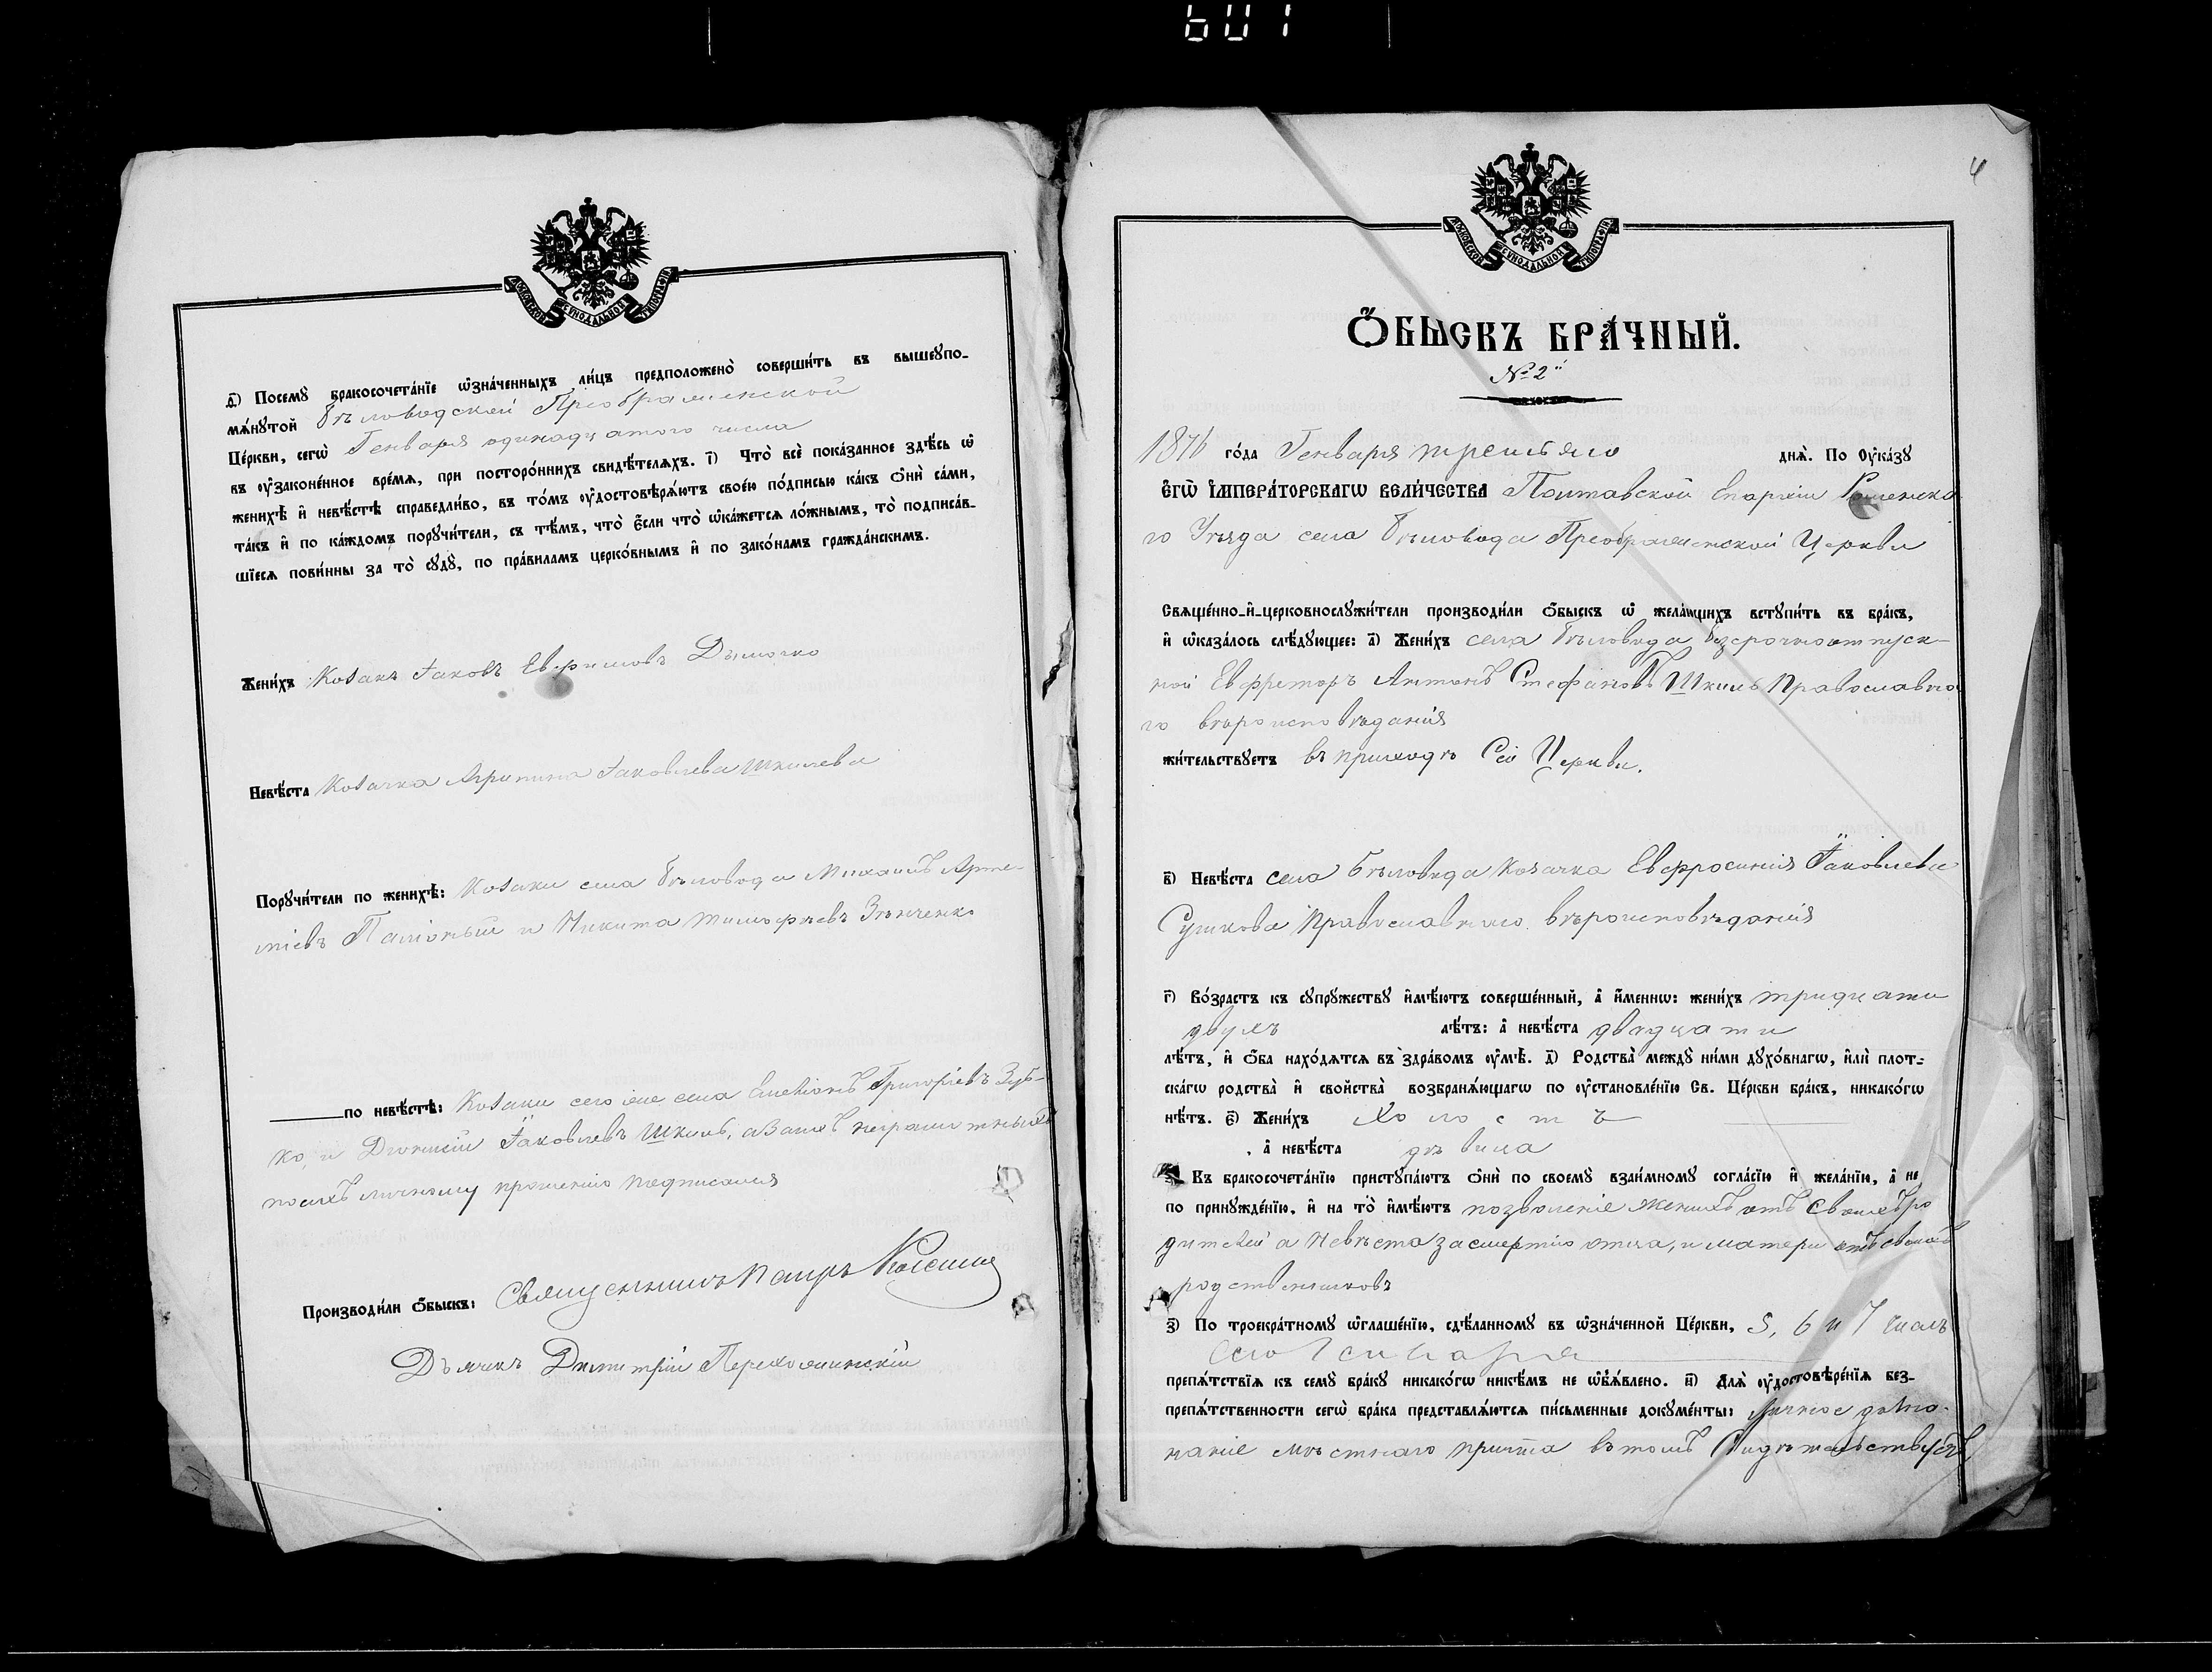 601
МОСКОВСКОЙ СѴНОДАЛЬНОЙ ТИПОГРАФІИ
д҃) Посемꙋ̀ бракосочета́нїе ѡ҆зна́ченныхъ ли́цъ предположено̀ соверши́ть въ вышеꙋпо-
мѧ́нꙋтой Бѣловодской Преображенской
Це́ркви, сегѡ̀ Генваря одинадцатого числа
въ ᲂу҆зако́ненное вре́мѧ, при посторо́ннихъ свидѣ́телѧхъ. і҃) Что̀ всѐ пока́занное здѣ́сь ѡ҆
женихѣ̀ и҆ невѣ́стѣ справедли́во, въ то́мъ ᲂу҆достовѣрѧ́ютъ свое́ю по́дписью ка́къ ѻ҆нѝ са́ми,
та́къ и҆ по ка́ждомъ порꙋчи́тели, съ тѣ́мъ, что̀ є҆́сли что̀ ѡ҆ка́жетсѧ ло́жнымъ, то̀ подписа́в-
шїесѧ пови́нны за то̀ сꙋдꙋ̀, по пра́виламъ церко́внымъ и҆ по зако́намъ гражда́нскимъ.
Жени́хъ Козакъ Іаковъ Евфимовъ Дымочко
Невѣ́ста Козачка Агрипина Іаковлева Шкилева
Порꙋчи́тели по женихѣ̀: Козаки села Бѣловода Михаилъ Арте-
міевъ и Никита Тимофѣевъ Зѣнченко
по невѣ́стѣ: Козаки сего же села Симеонъ Григоріевъ Зуб-
ко, и Діонисій Іаковлевъ Шкиль, а за ихъ неграмотныхъ
по ихъ личному прошенію подписался
Производи́ли ѻ҆́быскъ: Священникъ
Дьячекъ Димитрій
4
МОСКОВСКОЙ СѴНОДАЛЬНОЙ ТИПОГРАФІИ
Ѻ҆́БЫСКЪ БРА́ЧНЫЙ.
№ 2й
1876 го́да Генваря третьяго днѧ̀. По Оу҆ка́зꙋ
Е҆ГѠ̀ И҆МПЕРА́ТОРСКАГѠ ВЕЛИ́ЧЕСТВА Полтавской Епархіи Роменско
го Уѣзда села Бѣловода Преображенской Церкви
Свѧще́нно-и҆-церковнослꙋжи́тели производи́ли ѻ҆́быскъ ѡ҆ жела́ющихъ встꙋпи́ть въ бра́къ,
и҆ ѡ҆каза́лось слѣ́дꙋющее: а҃) Жени́хъ села Бѣловода безсрочноотпуск-
ной Ефрейторъ Антонъ Стефановъ Шкиль Православно
го вѣроисповѣданія
жи́тельствꙋетъ въ приходѣ Сей Церкви.
в҃) Невѣ́ста села Бѣловода козачка Евфросинія Іаковлева
Сушкова Православного вѣроисповѣданія
г҃) Во́зрастъ къ сꙋпрꙋ́жествꙋ и҆мѣ́ютъ соверше́нный, а҆ и҆́меннѡ: жени́хъ тридцати
двухъ лѣ́тъ: а҆ невѣ́ста двадцати
лѣ́тъ, и҆ ѻ҆́ба нахо́дѧтсѧ въ здра́вомъ ᲂу҆мѣ̀. д҃) Родства̀ междꙋ̀ ни́ми дꙋхо́внагѡ, и҆лѝ плот-
ска́гѡ родства̀ и҆ свойства̀ возбранѧ́ющагѡ по ᲂу҆становле́нїю Св. Це́ркви бра́къ, никако́гѡ
нѣ́тъ. є҃) Жени́хъ холостъ
, а҆ невѣ́ста дѣвица
Къ бракосочета́нїю пристꙋпа́ютъ ѻ҆нѝ по своемꙋ̀ взаи́мномꙋ согла́сїю и҆ жела́нїю, а҆ не
по принꙋжде́нїю, и҆ на то̀ и҆мѣ́ютъ позволеніе женихъ отъ своихъ ро
дителей а невѣста за смертію отца, и матери отъ своихъ
родственниковъ
з҃) По троекра́тномꙋ ѡ҆глаше́нїю, сдѣ́ланномꙋ въ ѡ҆зна́ченной Це́ркви, 5, 6 и 7 чиселъ
сего Генваря
препѧ́тствїѧ къ семꙋ̀ бра́кꙋ никако́гѡ никѣ́мъ не ѡ҆б̾ѧ́влено. и҃) Длѧ̀ ᲂу҆достовѣре́нїѧ без-
препѧ́тственности сегѡ̀ бра́ка представлѧ́ютсѧ пи́сьменные докꙋме́нты: Личное дозно-
наніе мѣстнаго причта въ томъ